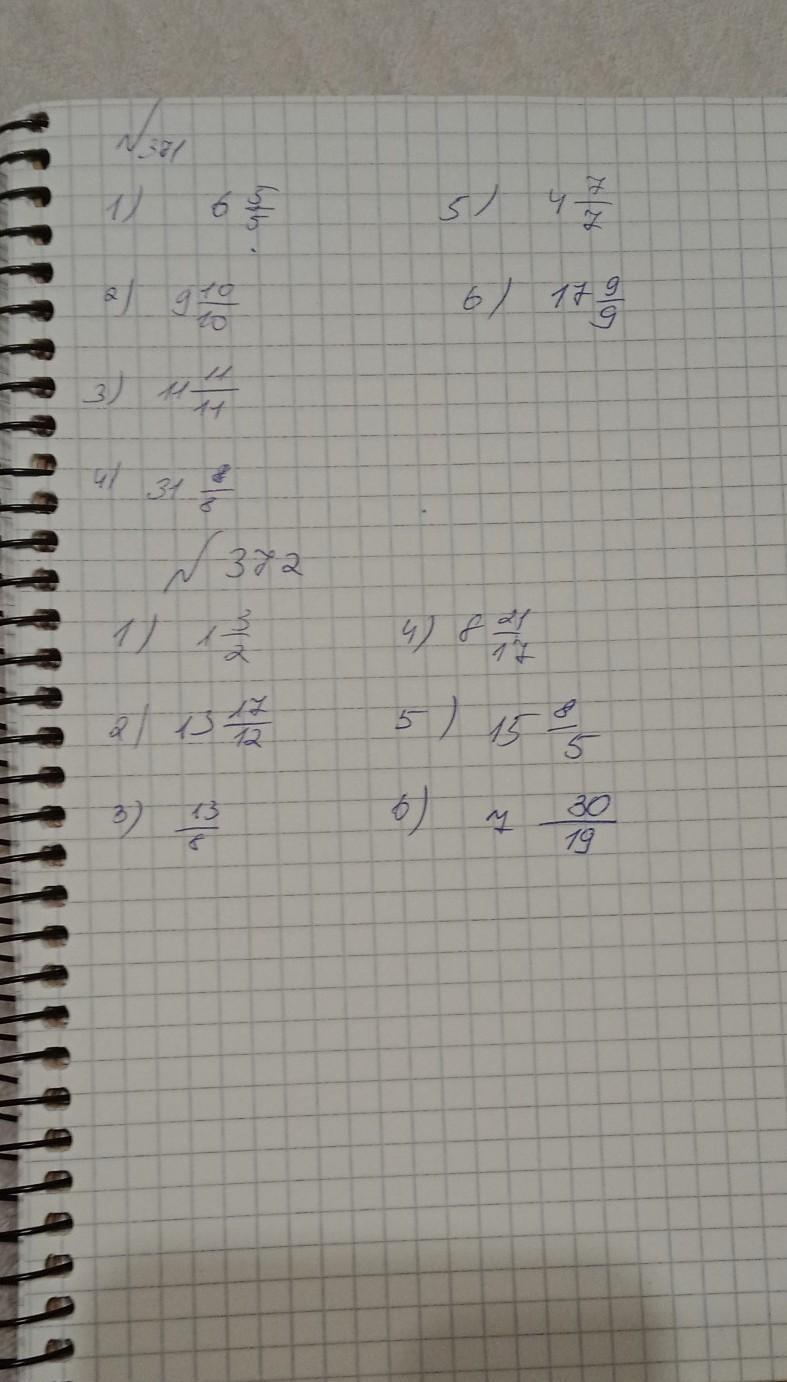 №371
1) 6 5/5 5) 4 7/7
2) 9 10/10 6) 17 9/9
3) 11 11/11
4) 31 8/8
№372
1) 1 3/2 4) 8 21/17
2) 13 17/12 5) 15 8/5
3) 13/8 6) 7 30/19